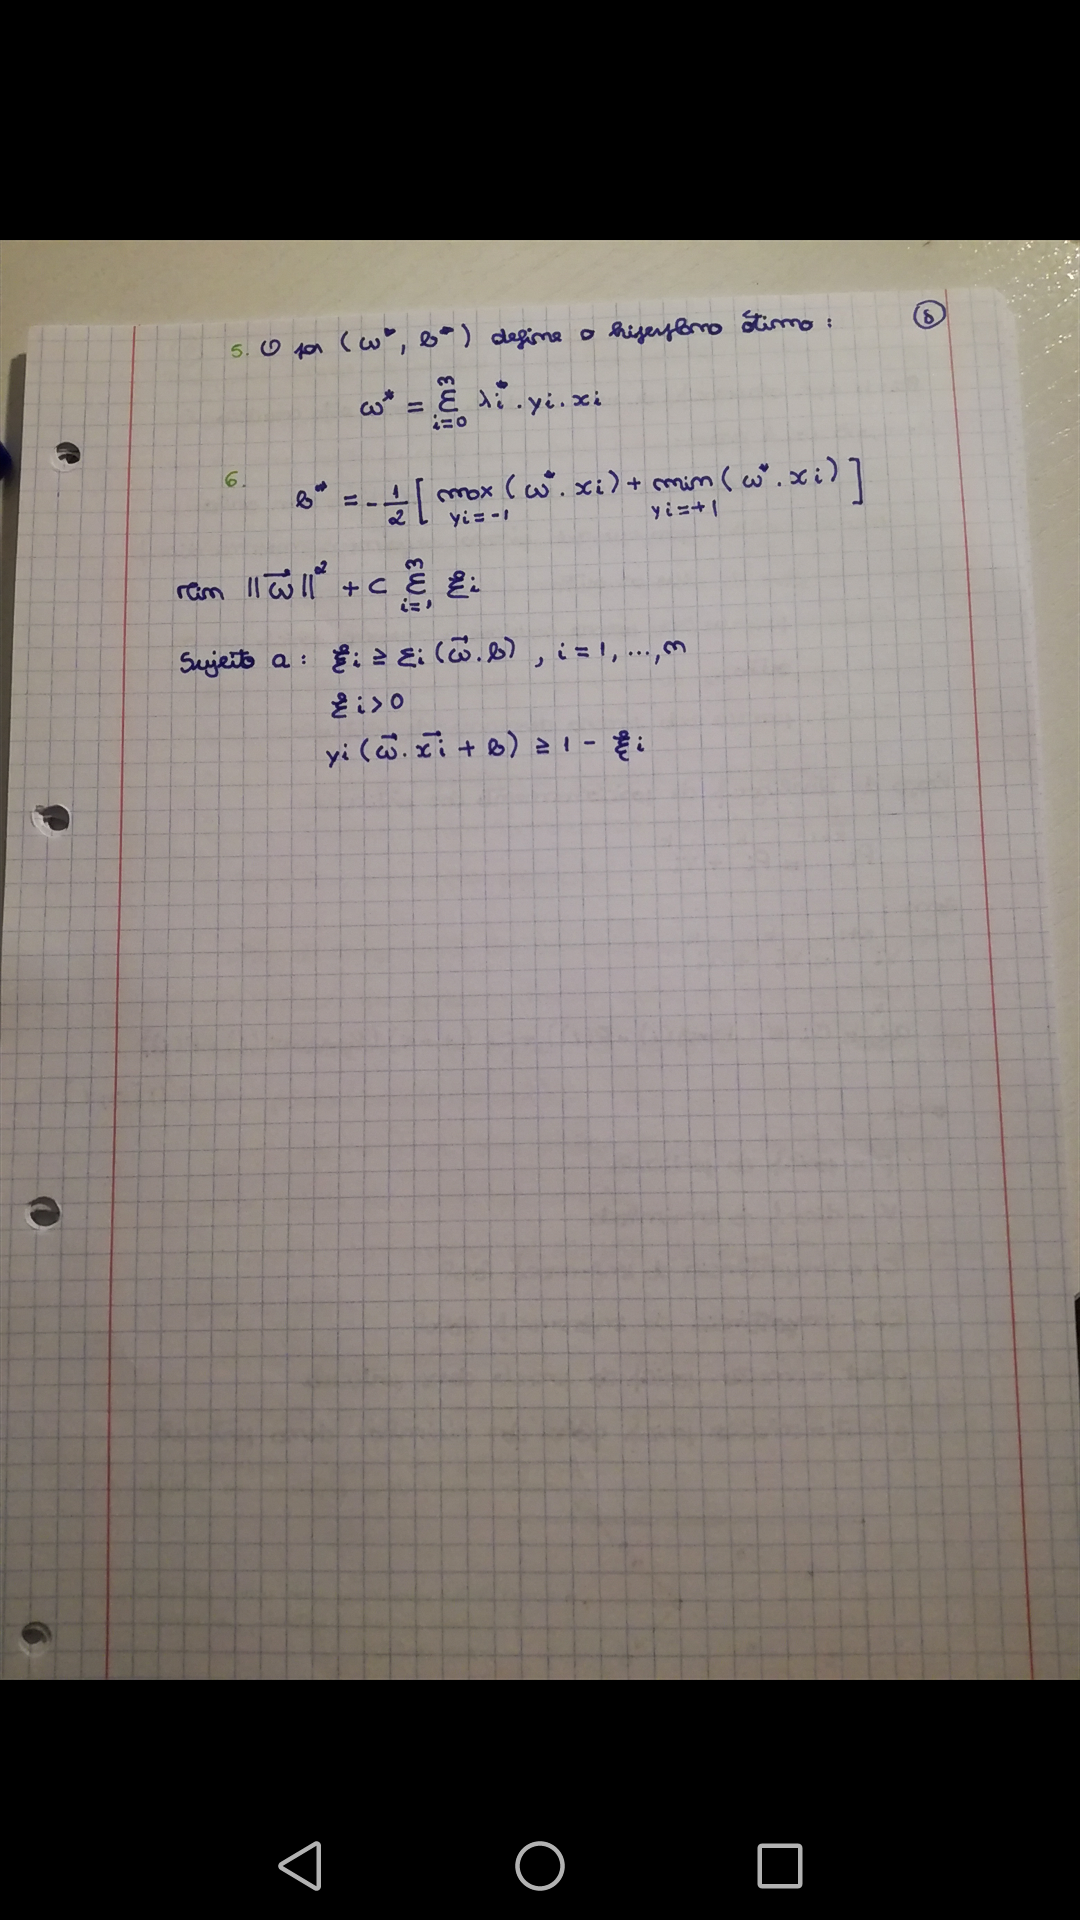 5. O par (ω*, b*) define o hiperplano ótimo:
⑧
ω* = Σ i=0 n λi* . yi . xi
6. b* = -1/2 [ max yi=-1 (ω* . xi) + min yi=+1 (ω* . xi) ]
min ||ω⃗||² + C Σ i=1 n ξi
Sujeito a: ξi ≥ Σi (ω⃗.b), i=1, ..., n
ξi>0
yi (ω⃗. x⃗i + b) ≥ 1 - ξi